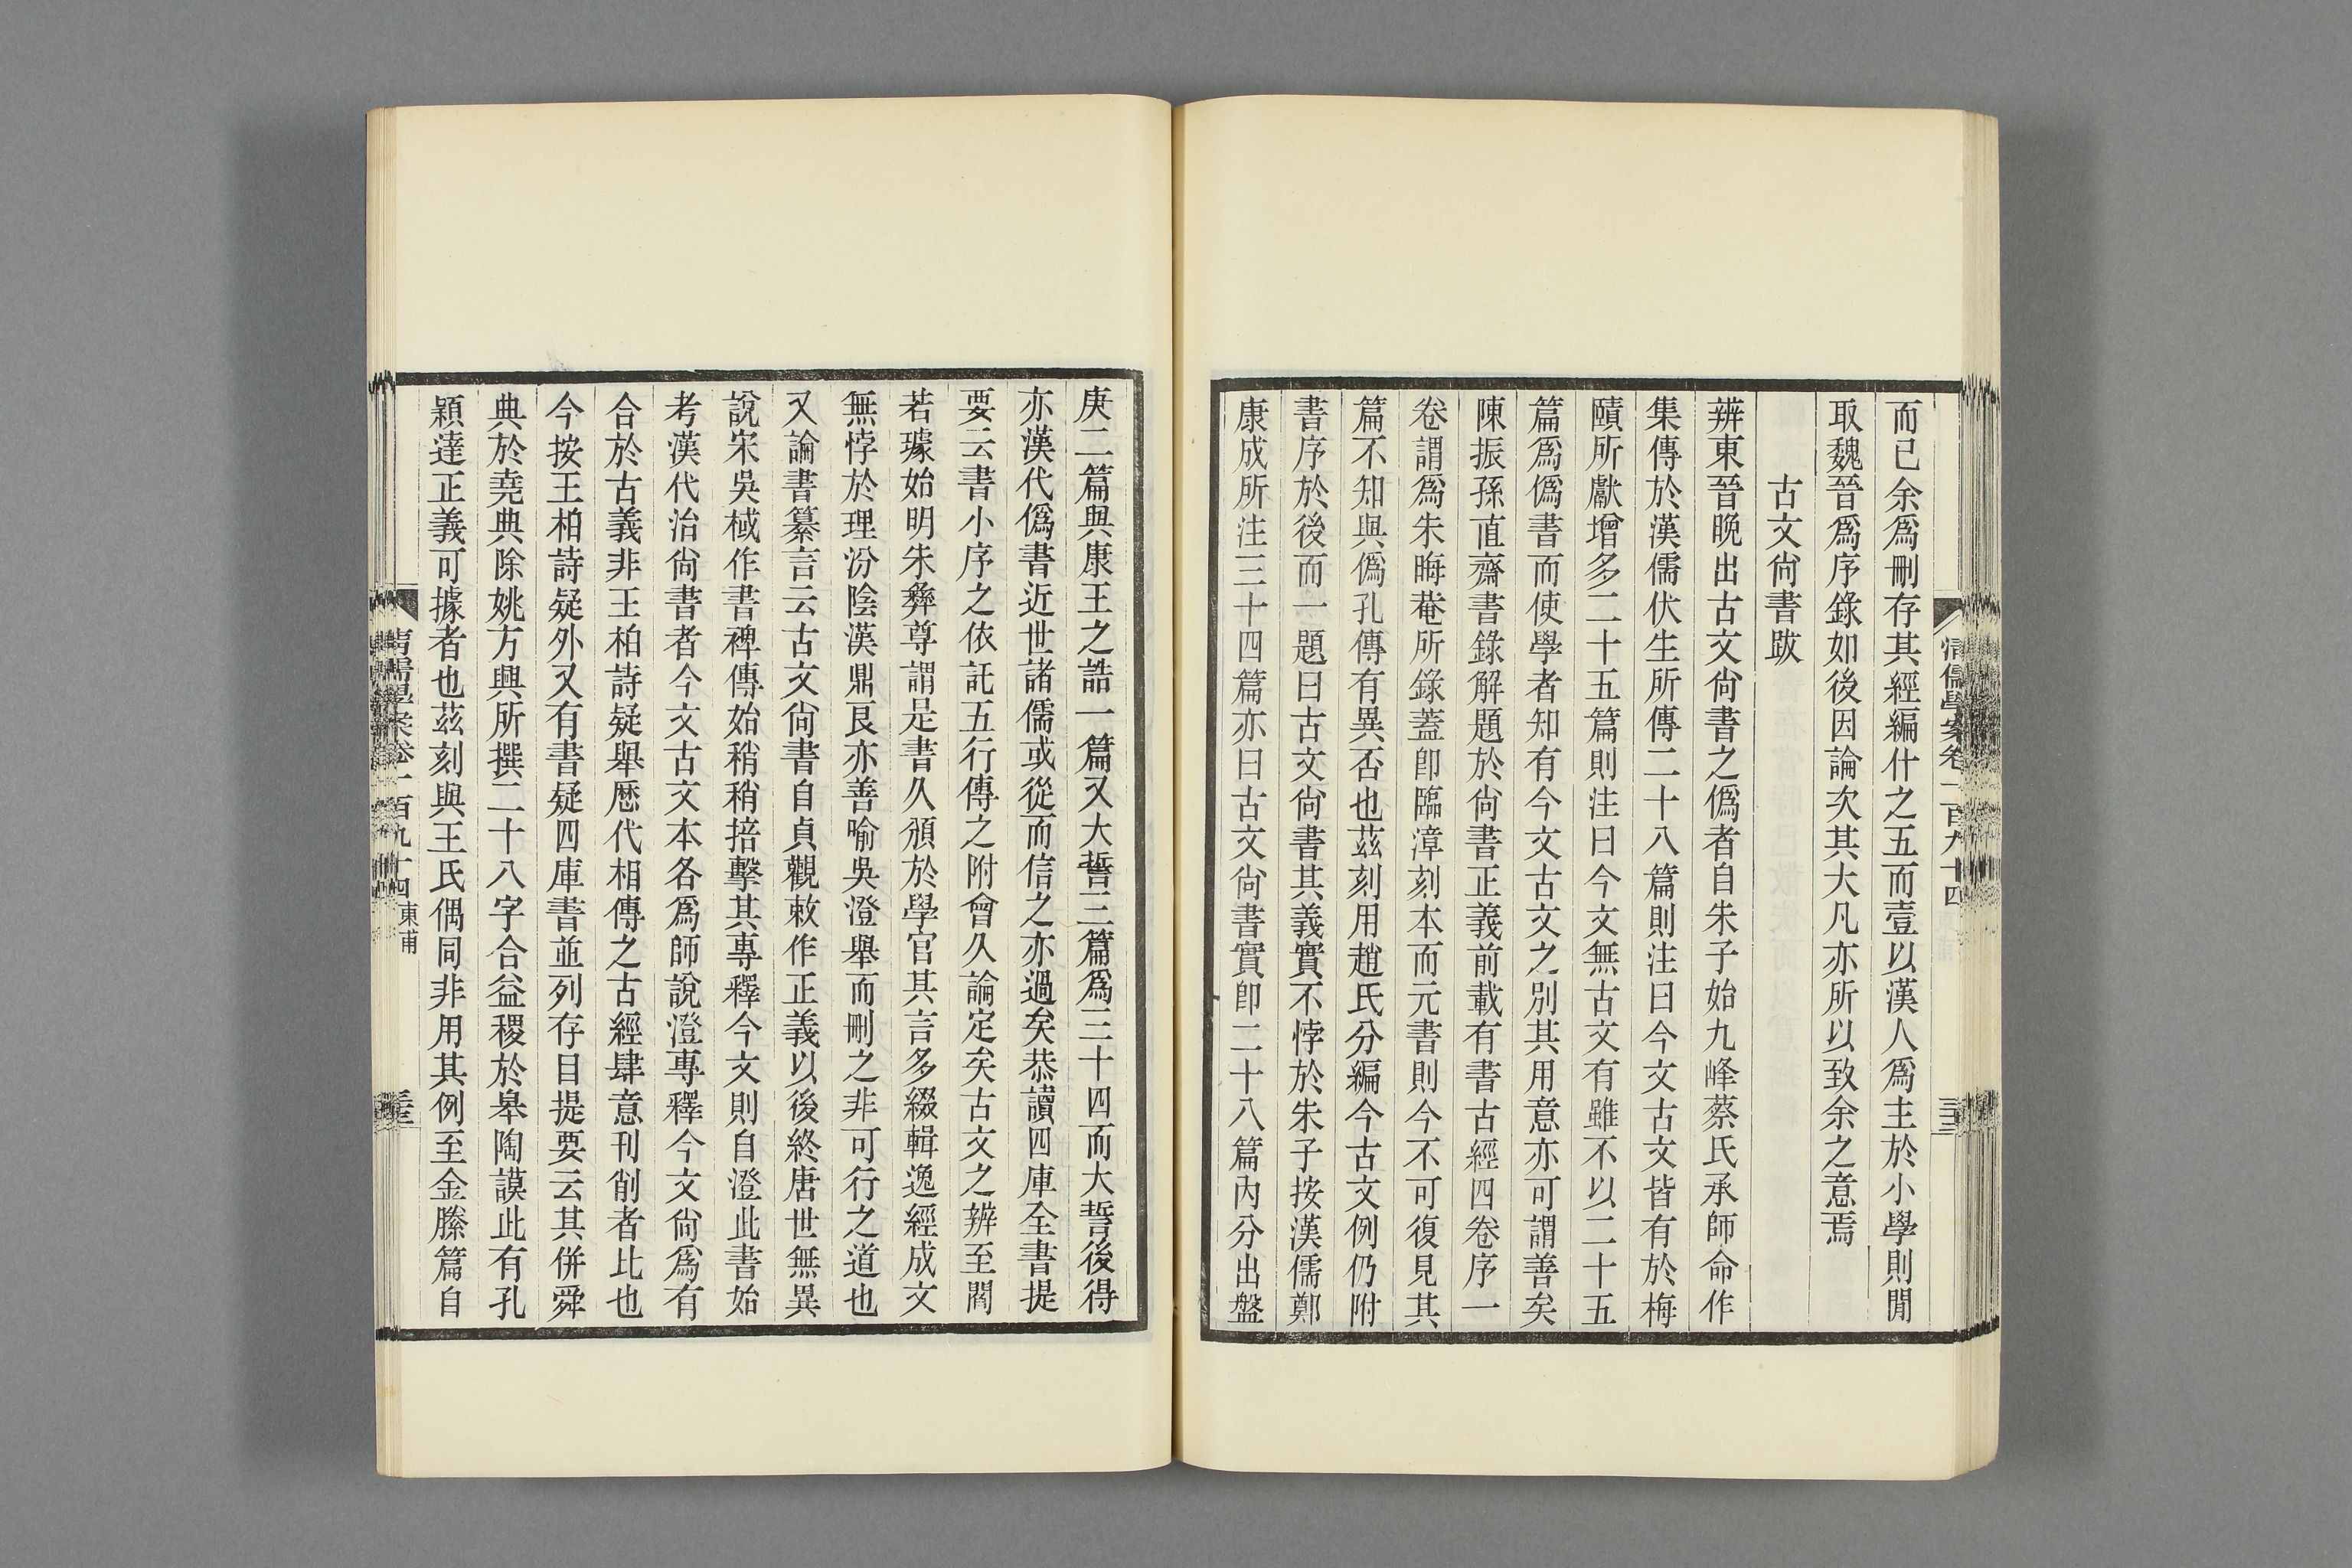 而已余爲刪存其經編什之五而壹以漢人爲主於小學則閒
取魏晉爲序錄如後因論次其大凡亦所以致余之意焉
古文尙書跋
辨東晉晚出古文尙書之僞者自朱子始九峰蔡氏承師命作
集傳於漢儒伏生所傳二十八篇則注曰今文古文皆有於梅
賾所獻增多二十五篇則注曰今文無古文有雖不以二十五
篇爲僞書而使學者知有今文古文之別其用意亦可謂善矣
陳振孫直齋書錄解題於尙書正義前載有書古經四卷序一
卷謂爲朱晦菴所錄蓋卽臨漳刻本而元書則今不可復見其
篇不知與僞孔傳有異否也茲刻用趙氏分編今古文例仍附
書序於後而一題曰古文尙書其義實不悖於朱子按漢儒鄭
康成所注三十四篇亦曰古文尙書實卽二十八篇內分出盤
庚二篇與康王之誥一篇又大誓三篇爲三十四而大誓後得
亦漢代僞書近世諸儒或從而信之亦過矣恭讀四庫全書提
要云書小序之依託五行傳之附會久論定矣古文之辨至閻
若璩始明朱彝尊謂是書久頒於學官其言多綴輯逸經成文
無悖於理汾陰漢鼎良亦善喻吳澄舉而刪之非可行之道也
又論書纂言云古文尙書自貞觀敕作正義以後終唐世無異
說宋吳棫作書稗傳始稍稍掊擊其專釋今文則自澄此書始
考漢代治尙書者今文古文本各爲師說澄專釋今文尙爲有
合於古義非王柏詩疑舉歷代相傳之古經肆意刊削者比也
今按王柏詩疑外又有書疑四庫書並列存目提要云其併舜
典於堯典除姚方興所撰二十八字合益稷於皋陶謨此有孔
穎達正義可據者也茲刻與王氏偶同非用其例至金縢篇自